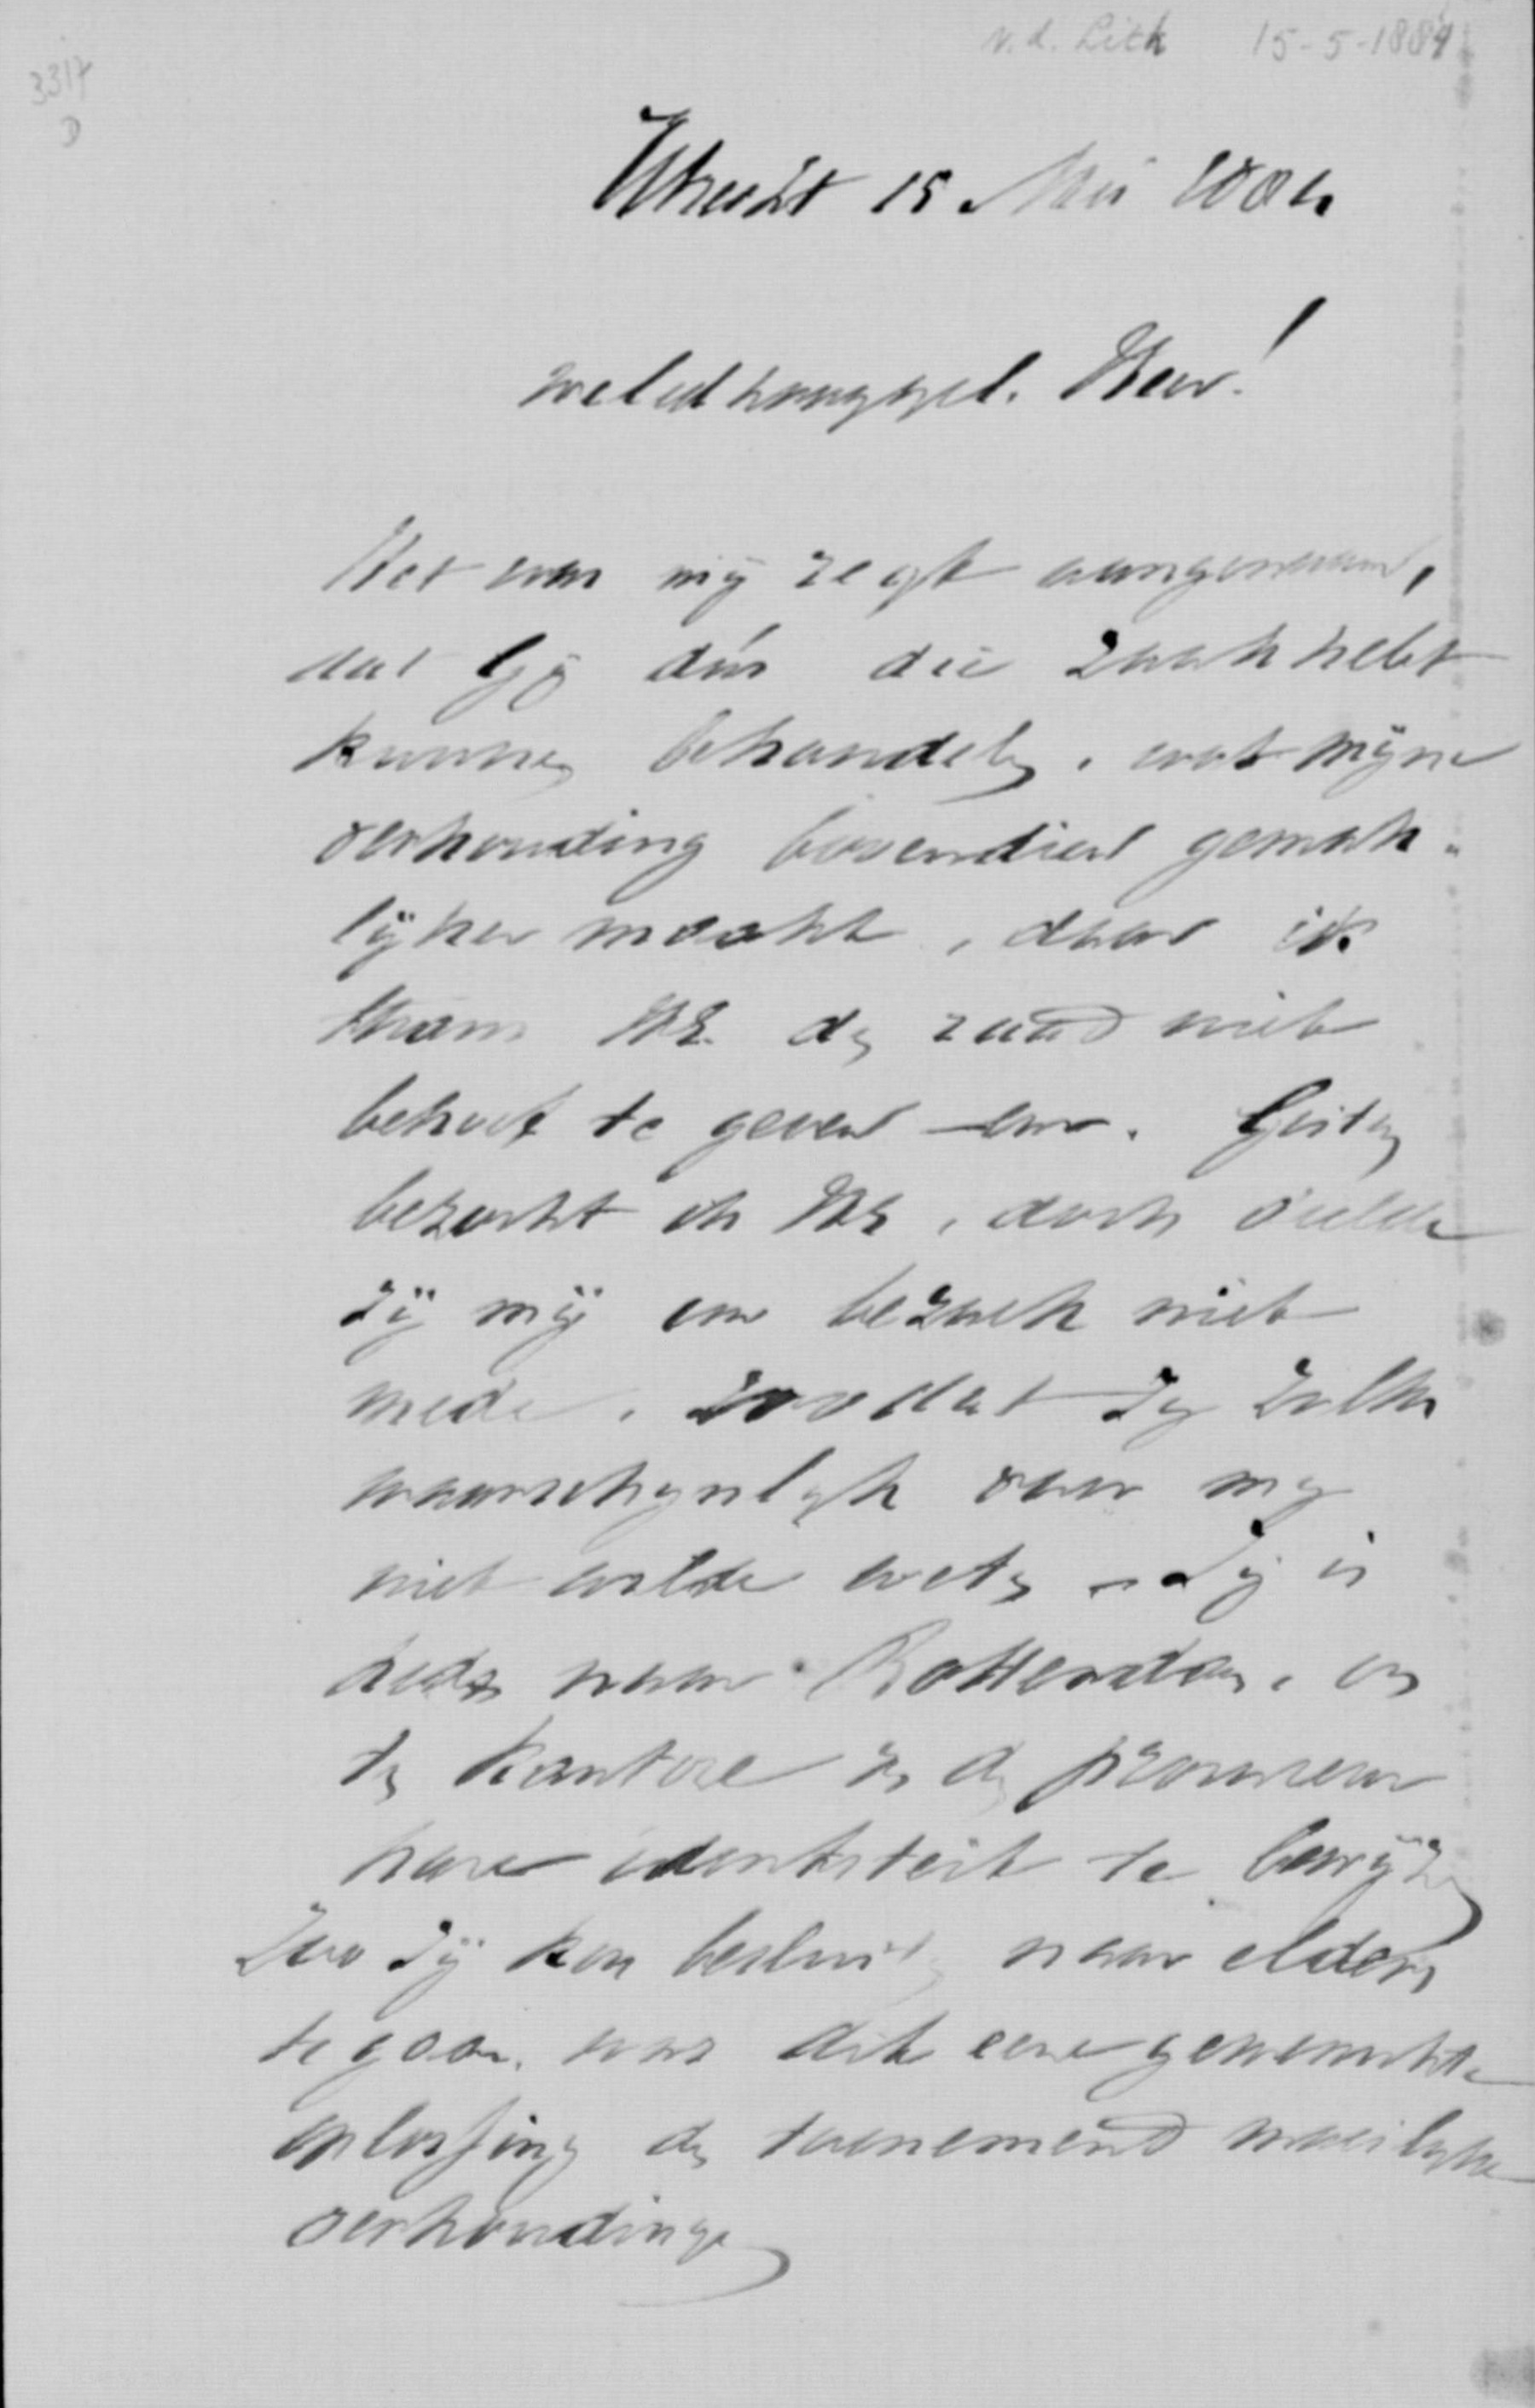 v.d. Lith 15-5-1884
3317
D
Utrecht 15 Mei 1884
weledhooggel. Heer!
Het was mij regt aangenaam,
dat Gij die zaak hebt
kunnen behandelen, wat mijne
verhouding bovendien gemak-
lijker maakt, daar ik
thans den raad niet
behoef te geven. Gisteren
bezocht ik, doch deelde
zij mij uw bezoek niet
mede, zoodat zij zulks
waarschijnlijk voor mij
niet wilde weten. Zij is
heden naar Rotterdam, om
ten kantore den procureur
hare identiteit te bewijzen
Zoo zij kon besluiten naar elders
te gaan, was dit eene gewenschte
oplossing der toenemend moeilijke
verhoudingen